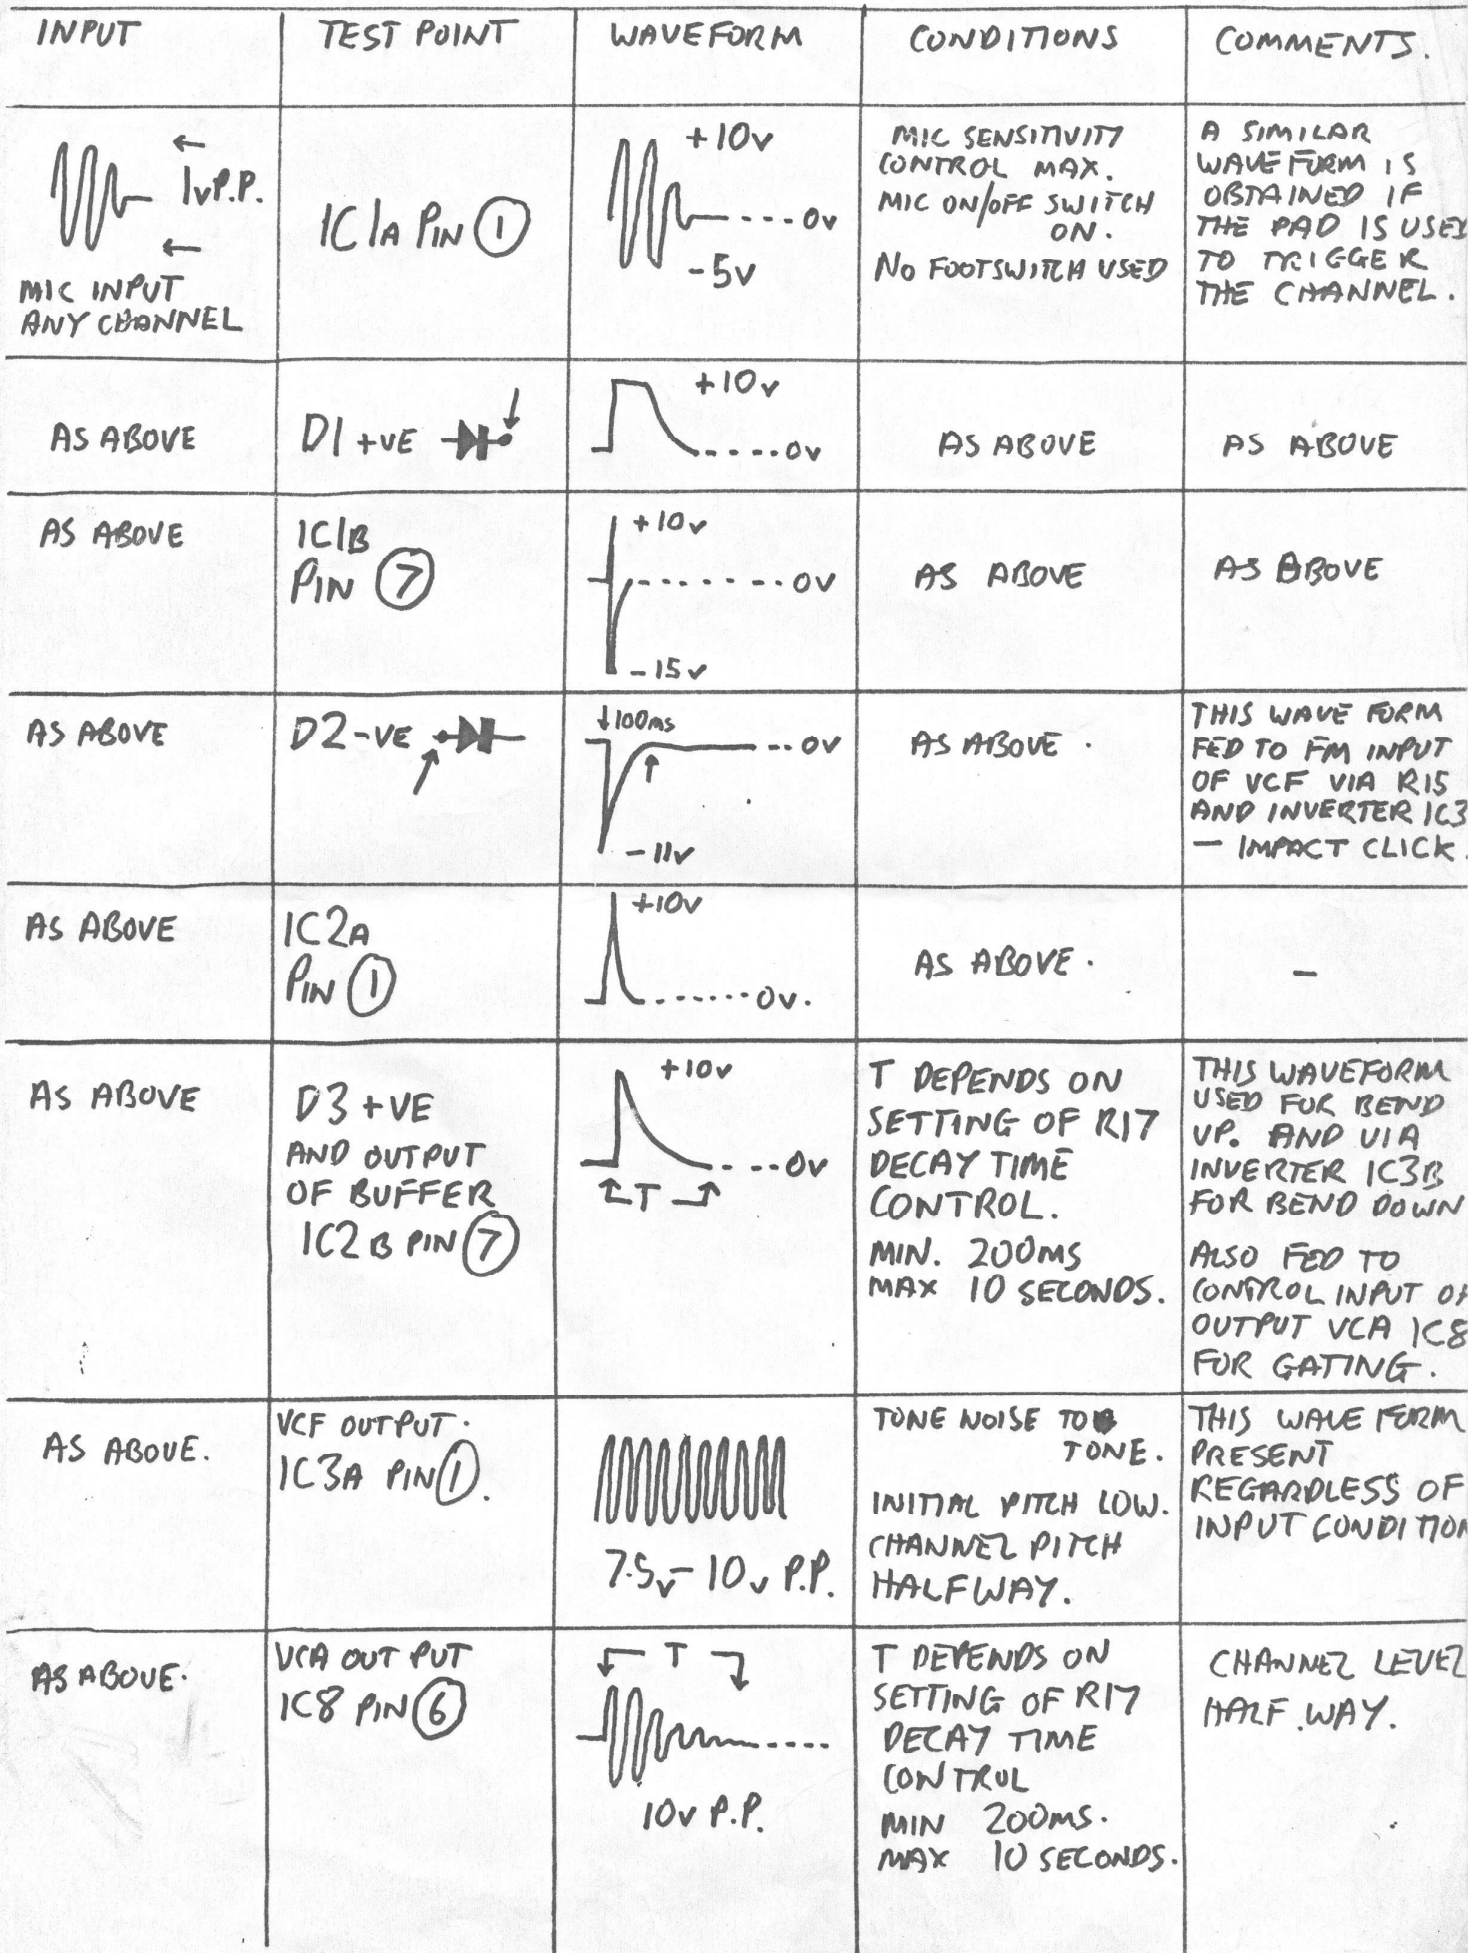 INPUT
TEST POINT
WAVEFORM
CONDITIONS
COMMENTS.
1v P.P.
MIC INPUT
ANY CHANNEL
IC1A PIN 1
+10v
0v
-5v
MIC SENSITIVITY
CONTROL MAX.
MIC ON/OFF SWITCH
ON.
NO FOOTSWITCH USED
A SIMILAR
WAVEFORM IS
OBTAINED IF
THE PAD IS USED
TO TRIGGER
THE CHANNEL.
AS ABOVE
D1 +VE
+10v
0v
AS ABOVE
AS ABOVE
AS ABOVE
IC1B
PIN 7
+10v
0v
-15v
AS ABOVE
AS ABOVE
AS ABOVE
D2 -VE
100ms
0v
-11v
AS ABOVE.
THIS WAVE FORM
FED TO FM INPUT
OF VCF VIA R15
AND INVERTER IC3
- IMPACT CLICK.
AS ABOVE
IC2A
PIN 1
+10v
0v.
AS ABOVE.
-
AS ABOVE
D3 +VE
AND OUTPUT
OF BUFFER
IC2B PIN 7
+10v
0v
T
T DEPENDS ON
SETTING OF R17
DECAY TIME
CONTROL.
MIN. 200MS
MAX 10 SECONDS.
THIS WAVEFORM
USED FOR BEND
UP. AND VIA
INVERTER IC3B
FOR BEND DOWN
ALSO FED TO
CONTROL INPUT OF
OUTPUT VCA IC8
FOR GATING.
AS ABOVE.
VCF OUTPUT.
IC3A PIN 1.
7.5v - 10v P.P.
TONE NOISE TO
TONE.
INITIAL PITCH LOW.
CHANNEL PITCH
HALFWAY.
THIS WAVE FORM
PRESENT
REGARDLESS OF
INPUT CONDITION
AS ABOVE.
VCA OUTPUT
IC8 PIN 6
T
10v P.P.
T DEPENDS ON
SETTING OF R17
DECAY TIME
CONTROL
MIN 200MS.
MAX 10 SECONDS.
CHANNEL LEVEL
HALF WAY.